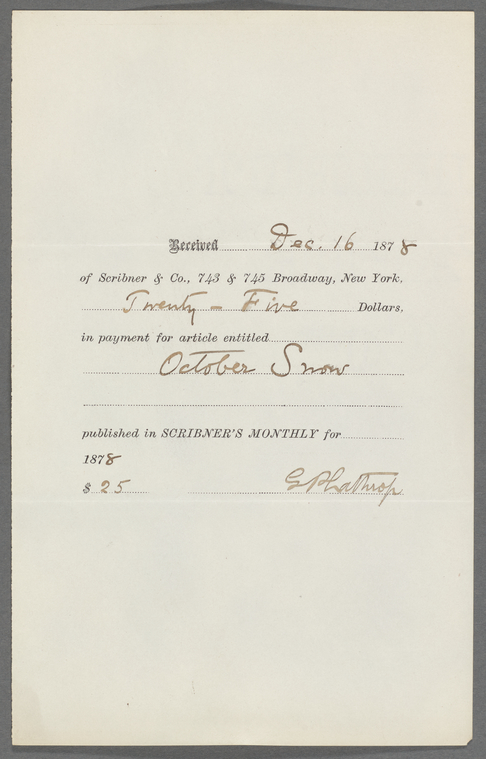 Received Dec. 16 1878
of Scribner & Co., 743 & 745 Broadway, New York,
Twenty - Five Dollars,
in payment for article entitled
October Snow
published in SCRIBNER'S MONTHLY for
1878
$ 25 G P Lathrop